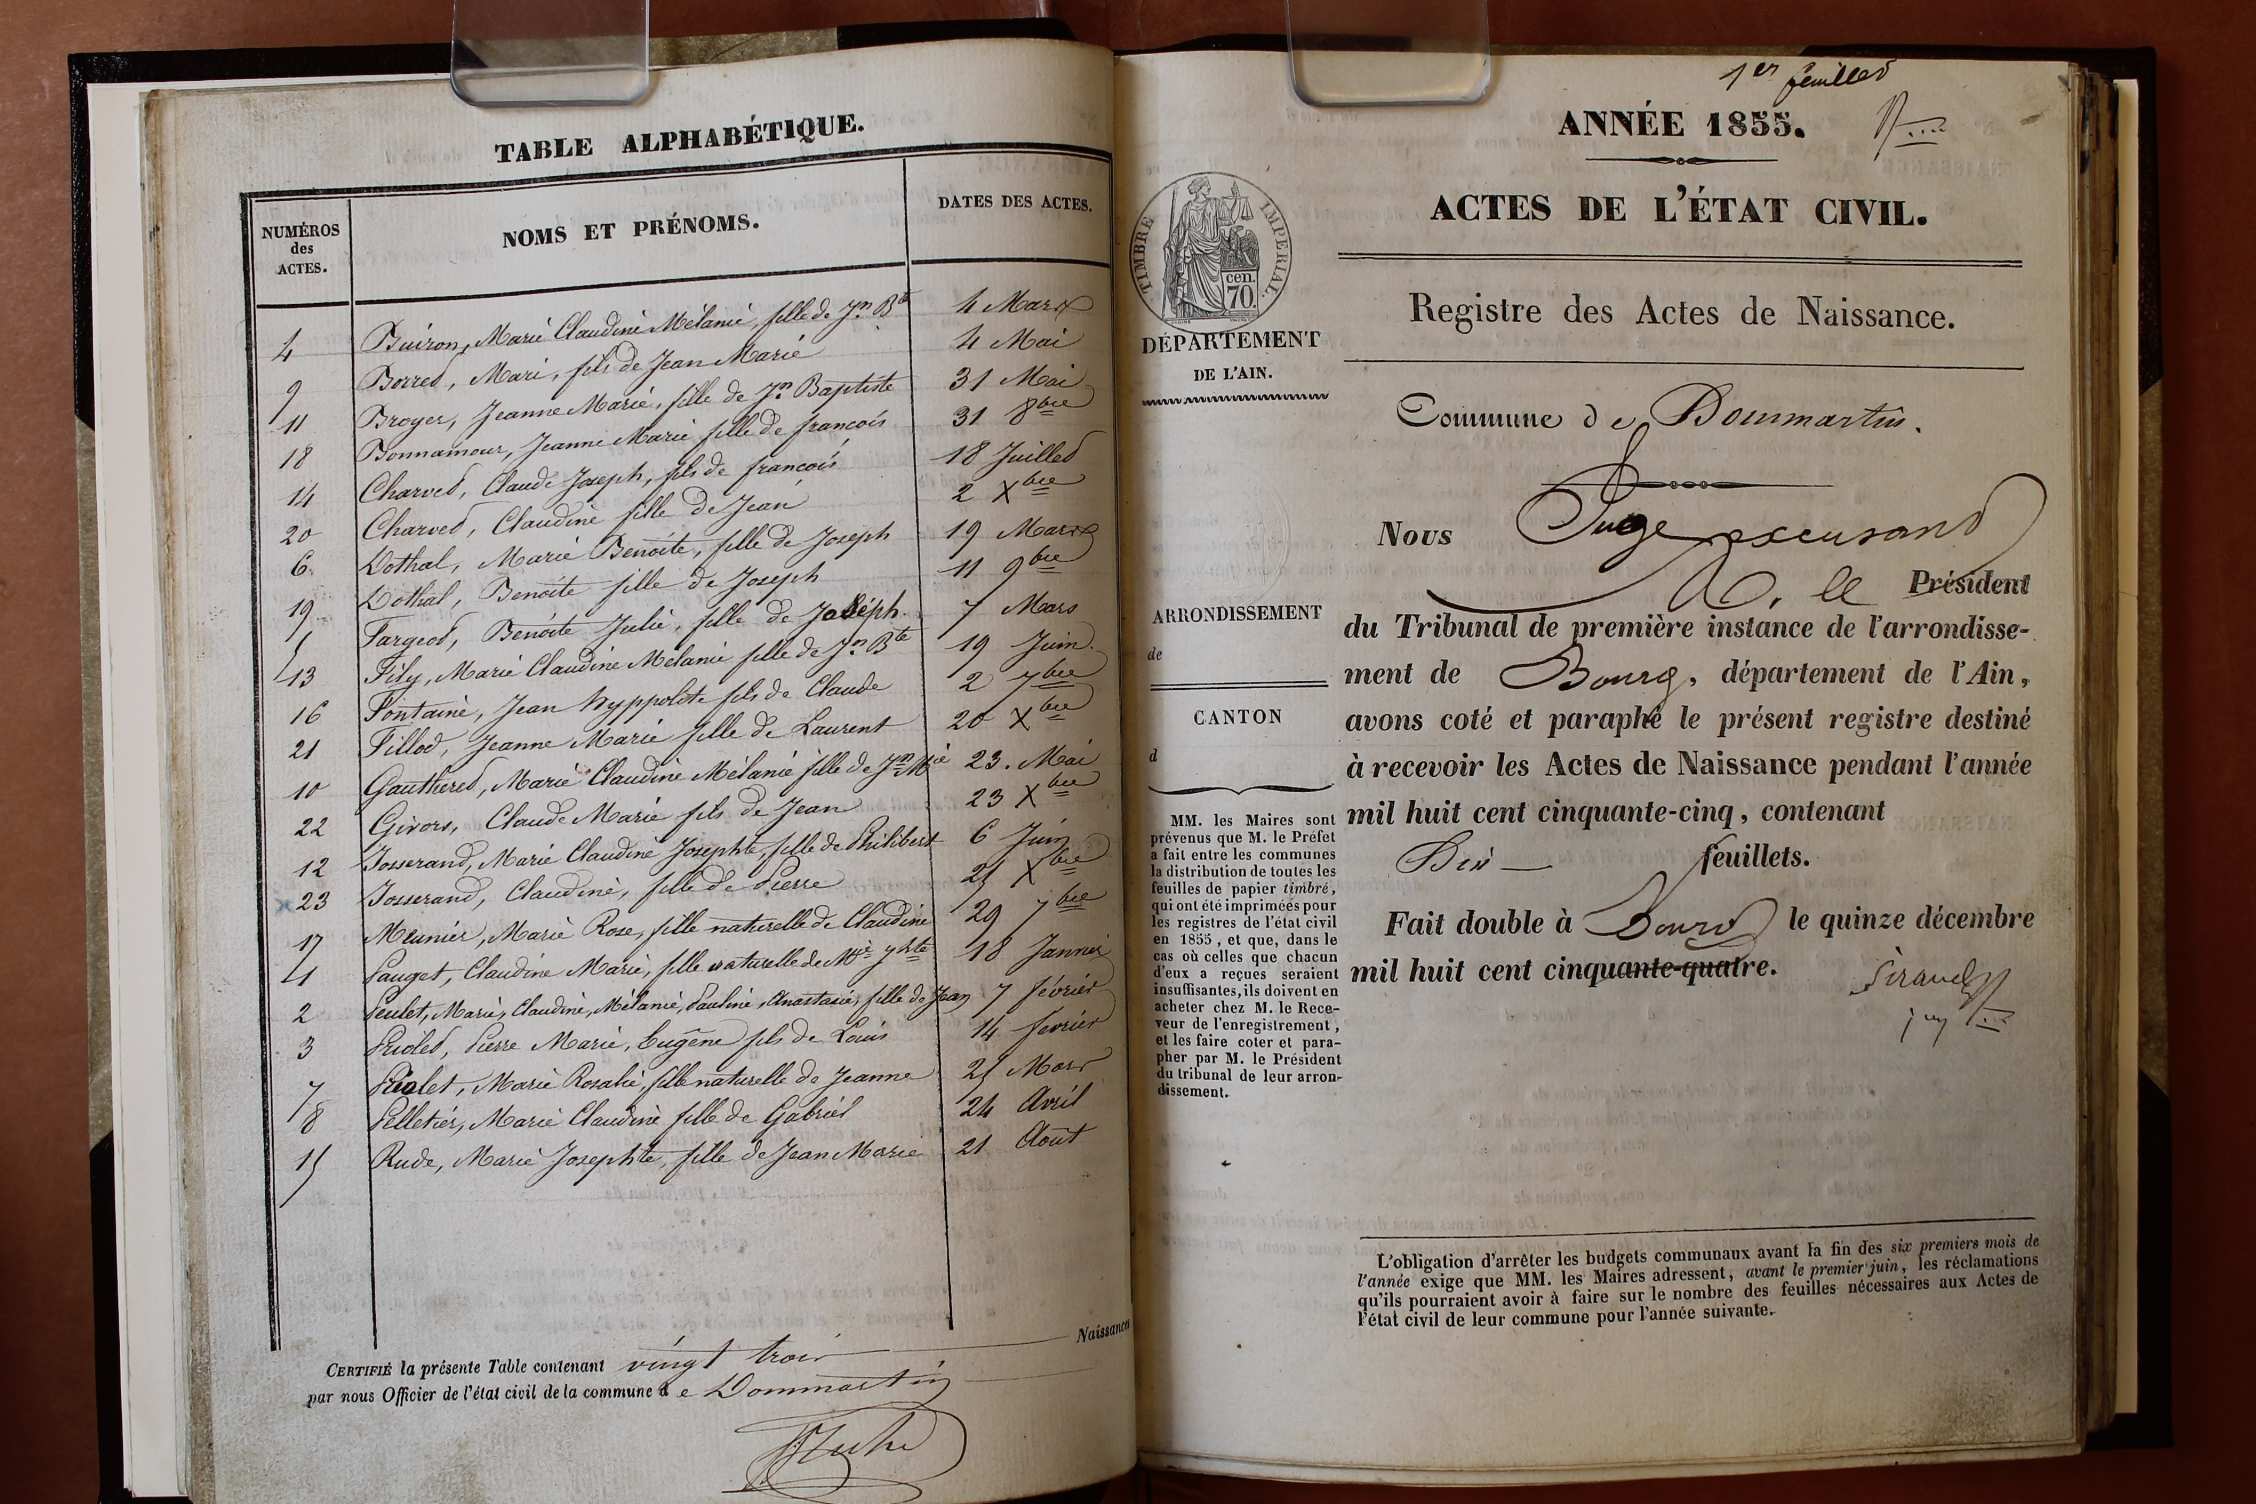 TABLE ALPHABÉTIQUE.
NUMÉROS
des
ACTES.
NOMS ET PRÉNOMS.
DATES DES ACTES.
4 Buiron, Marie Claudine Mélanie, fille de Jn Bte 4 Mars
9 Borred, Marie, fils de Jean Marie 4 Mai
11 Broyer, Jeanne Marie, fille de Jn Baptiste 31 Mai
18 Bonnamour, Jeanne Marie fille de françois 31 8bre
14 Charved, Claude Joseph, fils de françois 18 Juilled
20 Charved, Claudine fille de Jean 2 Xbre
6 Dothal, Marie Benoite, fille de Joseph 19 Mars
19 Dothal, Benoite fille de Joseph 11 9bre
5 Fargeod, Benoite Julie, fille de Joséph 7 Mars
13 Fily, Marie Claudine Mélanie fille de Jn Bte 19 Juin
16 Fontaine, Jean hyppolite fils de Claude 2 7bre
21 Fillod, Jeanne Marie fille de Laurent 20 Xbre
10 Gauthered, Marie Claudine Mélanie fille de Jn Mie 23. Mai
22 Givors, Claude Marie fils de Jean 23 Xbre
12 Josserand, Marie Claudine Josephte, fille de Philibert 6 Juin
23 Josserand, Claudine, fille de Pierre 25 Xbre
17 Meunier, Marie Rose, fille naturelle de Claudine 29 7bre
1 Pauget, Claudine Marie, fille naturelle de Mie 18 Janvier
2 Peulet, Marie, Claudine, Mélanie, Pauline, Anastasie, fille de Jean 7 février
3 Prioled, Pierre Marie, Eugène fils de Louis 14 février
7 Priolet, Marie Rosalie, fille naturelle de Jeanne 25 Mars
8 Pelletier, Marie Claudine fille de Gabriel 24 Avril
15 Rude, Marie Josephte, fille de Jean Marie 21 Août
CERTIFIÉ la présente Table contenant vingt trois Naissances
par nous Officier de l'état civil de la commune de Dommartin
1er feuilled
ANNÉE 1855.
ACTES DE L'ÉTAT CIVIL.
Registre des Actes de Naissance.
TIMBRE IMPERIAL
cen.
70
DÉPARTEMENT
DE L'AIN.
ARRONDISSEMENT
de
CANTON
d
MM. les Maires sont
prévenus que M. le Préfet
a fait entre les communes
la distribution de toutes les
feuilles de papier timbré,
qui ont été imprimées pour
les registres de l'état civil
en 1855, et que, dans le
cas où celles que chacun
d'eux a reçues seraient
insuffisantes, ils doivent en
acheter chez M. le Rece-
veur de l'enregistrement,
et les faire coter et para-
pher par M. le Président
du tribunal de leur arron-
dissement.
Commune de Dommartin.
Nous Juge excusand
M. le Président
du Tribunal de première instance de l'arrondisse-
ment de Bourg, département de l'Ain,
avons coté et paraphé le présent registre destiné
à recevoir les Actes de Naissance pendant l'année
mil huit cent cinquante-cinq, contenant
Dix feuillets.
Fait double à Bourg le quinze décembre
mil huit cent cinquante-quatre.
L'obligation d'arrêter les budgets communaux avant la fin des six premiers mois de
l'année exige que MM. les Maires adressent, avant le premier juin, les réclamations
qu'ils pourraient avoir à faire sur le nombre des feuilles nécessaires aux Actes de
l'état civil de leur commune pour l'année suivante.